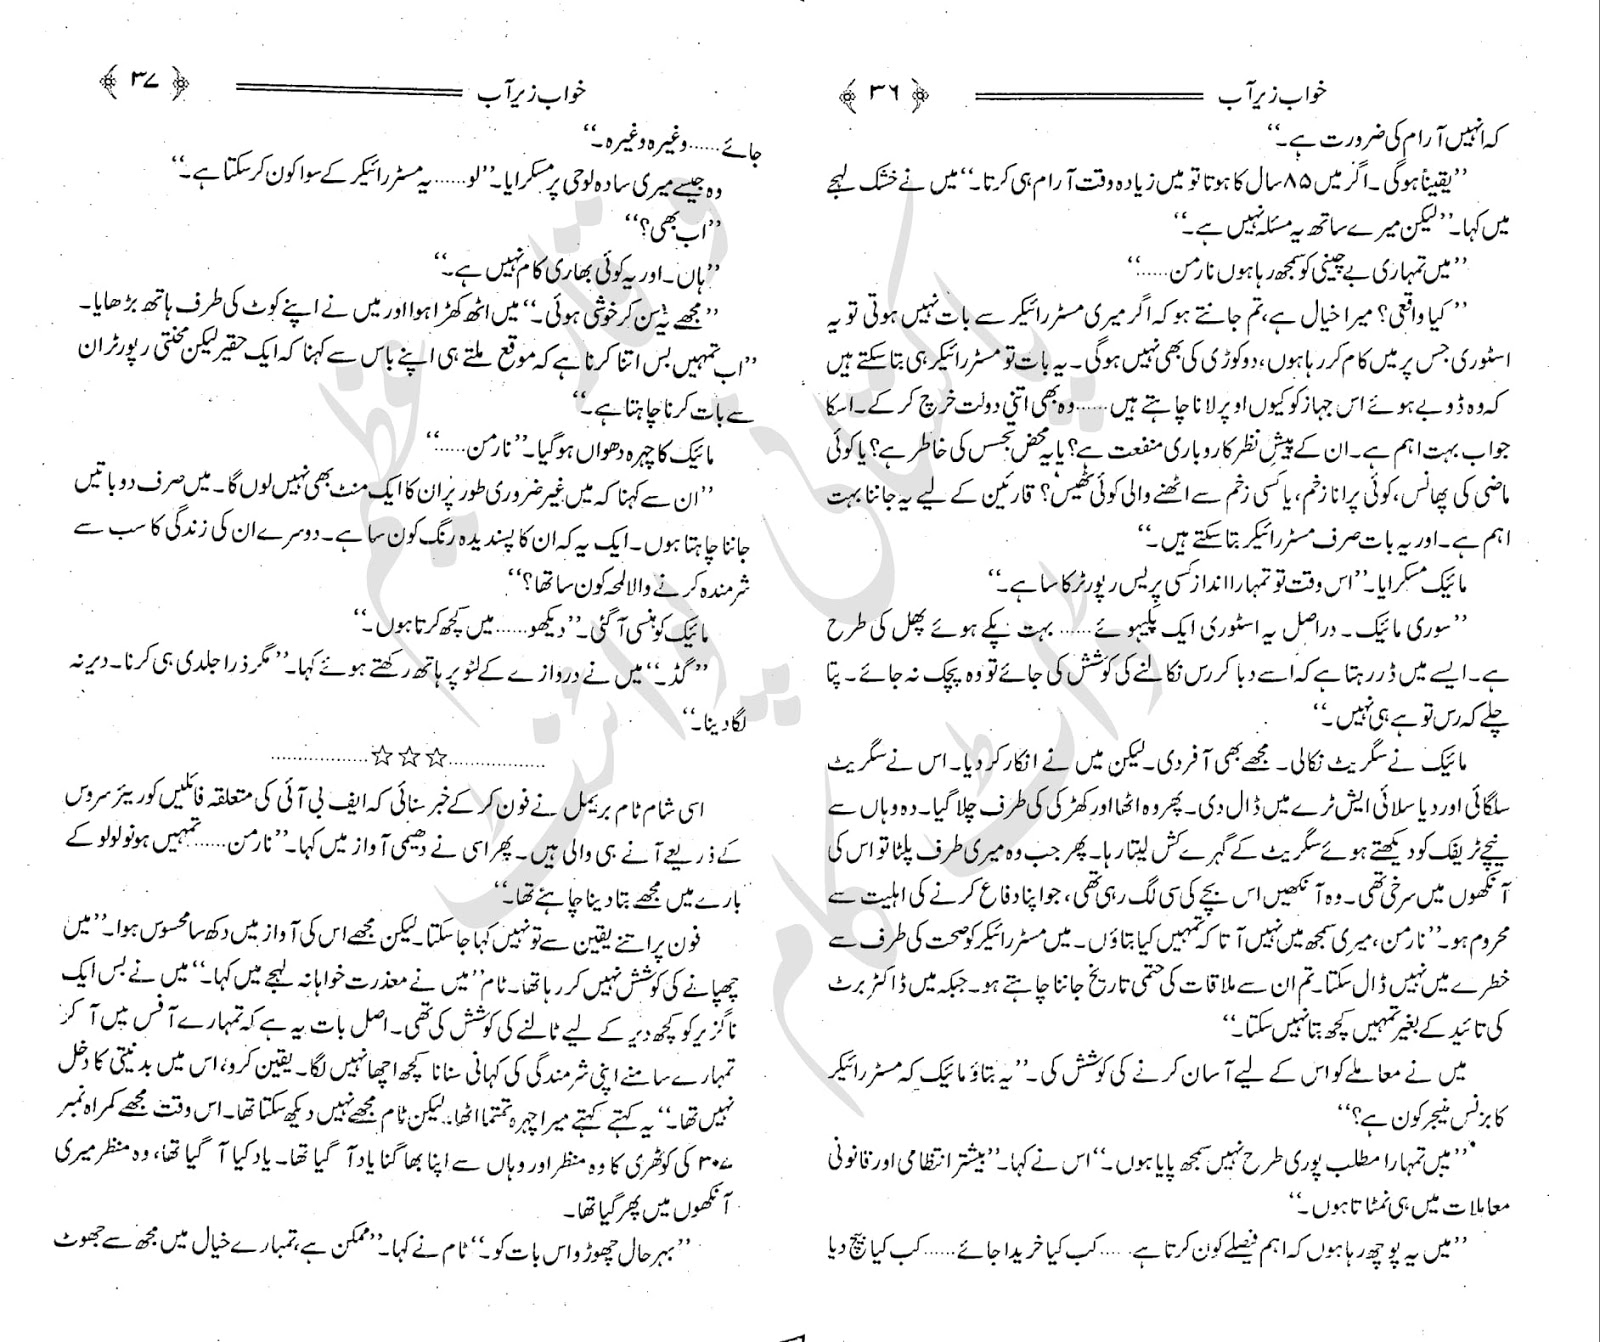 خواب زیرِ آب ﴿ ۳۶ ﴾
کہ انہیں آرام کی ضرورت ہے۔‘‘
’’یقیناً ہوگی۔ اگر میں ۸۵ سال کا ہوتا تو میں زیادہ وقت آرام ہی کرتا۔‘‘ میں نے خشک لہجے
میں کہا۔ ’’لیکن میرے ساتھ یہ مسئلہ نہیں ہے۔‘‘
’’میں تمہاری بے چینی کو سمجھ رہا ہوں نارمن......‘‘
’’کیا واقعی؟ میرا خیال ہے، تم جانتے ہو کہ اگر میری مسٹر رائیکر سے بات نہیں ہوتی تو یہ
اسٹوری جس پر میں کام کر رہا ہوں، دو کوڑی کی بھی نہیں ہوگی۔ یہ بات تو مسٹر رائیکر ہی بتا سکتے ہیں
کہ وہ ڈوبے ہوئے اس جہاز کو کیوں اوپر لانا چاہتے ہیں...... وہ بھی اتنی دولت خرچ کر کے۔ اسکا
جواب بہت اہم ہے۔ ان کے پیشِ نظر کاروباری منفعت ہے؟ یا یہ محض تجسس کی خاطر ہے؟ یا کوئی
ماضی کی پھانس، کوئی پرانا زخم، یا کسی زخم سے اٹھنے والی کوئی ٹھیس؟ قارئین کے لیے یہ جاننا بہت
اہم ہے۔ اور یہ بات صرف مسٹر رائیکر بتا سکتے ہیں۔‘‘
مائیک مسکرایا۔ ’’اس وقت تو تمہارا انداز کسی پریس رپورٹر کا سا ہے۔‘‘
’’سوری مائیک۔ دراصل یہ اسٹوری ایک پلپہوئے...... بہت پکے ہوئے پھل کی طرح
ہے۔ ایسے میں ڈر رہتا ہے کہ اسے دبا کر رس نکالنے کی کوشش کی جائے تو وہ پچک نہ جائے۔ پتا
چلے کہ رس تو ہے ہی نہیں۔‘‘
مائیک نے سگریٹ نکالی۔ مجھے بھی آفر دی۔ لیکن میں نے انکار کر دیا۔ اس نے سگریٹ
سلگائی اور دیا سلائی ایش ٹرے میں ڈال دی۔ پھر وہ اٹھا اور کھڑکی کی طرف چلا گیا۔ وہ وہاں سے
نیچے ٹریفک کو دیکھتے ہوئے سگریٹ کے گہرے کش لیتا رہا۔ پھر جب وہ میری طرف پلٹا تو اس کی
آنکھوں میں سرخی تھی۔ وہ آنکھیں اس بچے کی سی لگ رہی تھی، جو اپنا دفاع کرنے کی اہلیت سے
محروم ہو۔ ’’نارمن، میری سمجھ میں نہیں آتا کہ تمہیں کیا بتاؤں۔ میں مسٹر رائیکر کو صحت کی طرف سے
خطرے میں نہیں ڈال سکتا۔ تم ان سے ملاقات کی حتمی تاریخ جاننا چاہتے ہو۔ جبکہ میں ڈاکٹر برٹ
کی تائید کے بغیر تمہیں کچھ بتا نہیں سکتا۔‘‘
میں نے معاملے کو اس کے لیے آسان کرنے کی کوشش کی۔ ’’یہ بتاؤ مائیک کہ مسٹر رائیکر
کا بزنس منیجر کون ہے؟‘‘
’’میں تمہارا مطلب پوری طرح نہیں سمجھ پایا ہوں۔‘‘ اس نے کہا۔ ’’بیشتر انتظامی اور قانونی
معاملات میں ہی نمٹاتا ہوں۔‘‘
’’میں یہ پوچھ رہا ہوں کہ اہم فیصلے کون کرتا ہے...... کب کیا خریدا جائے...... کب کیا بیچ دیا
خواب زیرِ آب ﴿ ۳۷ ﴾
جائے...... وغیرہ وغیرہ۔‘‘
وہ جیسے میری سادہ لوحی پر مسکرایا۔ ’’لو...... یہ مسٹر رائیکر کے سوا کون کر سکتا ہے۔‘‘
’’اب بھی؟‘‘
’’ہاں۔ اور یہ کوئی بھاری کام نہیں ہے۔‘‘
’’مجھے یہ سن کر خوشی ہوئی۔‘‘ میں اٹھ کھڑا ہوا اور میں نے اپنے کوٹ کی طرف ہاتھ بڑھایا۔
’’اب تمہیں بس اتنا کرنا ہے کہ موقع ملتے ہی اپنے باس سے کہنا کہ ایک حقیر لیکن محنتی رپورٹر ان
سے بات کرنا چاہتا ہے۔‘‘
مائیک کا چہرہ دھواں ہو گیا۔ ’’نارمن......‘‘
’’ان سے کہنا کہ میں غیر ضروری طور پر ان کا ایک منٹ بھی نہیں لوں گا۔ میں صرف دو باتیں
جاننا چاہتا ہوں۔ ایک یہ کہ ان کا پسندیدہ رنگ کون سا ہے۔ دوسرے ان کی زندگی کا سب سے
شرمندہ کرنے والا لمحہ کون سا تھا؟‘‘
مائیک کو ہنسی آ گئی۔ ’’دیکھو...... میں کچھ کرتا ہوں۔‘‘
’’گڈ۔‘‘ میں نے دروازے کے لٹو پر ہاتھ رکھتے ہوئے کہا۔ ’’مگر ذرا جلدی ہی کرنا۔ دیر نہ
لگا دینا۔‘‘
..................☆☆☆..................
اسی شام ٹام بریمل نے فون کر کے خبر سنائی کہ ایف بی آئی کی متعلقہ فائلیں کوریئر سروس
کے ذریعے آنے ہی والی ہیں۔ پھر اسی نے دھیمی آواز میں کہا۔ ’’نارمن...... تمہیں ہونولولو کے
بارے میں مجھے بتا دینا چاہئے تھا۔‘‘
فون پر اتنے یقین سے تو نہیں کہا جا سکتا۔ لیکن مجھے اس کی آواز میں دکھ سا محسوس ہوا۔ ’’میں
چھپانے کی کوشش نہیں کر رہا تھا۔ ٹام‘‘ میں نے معذرت خواہانہ لہجے میں کہا۔ ’’میں نے بس ایک
ناگزیر کو کچھ دیر کے لیے ٹالنے کی کوشش کی تھی۔ اصل بات یہ ہے کہ تمہارے آفس میں آ کر
تمہارے سامنے اپنی شرمندگی کی کہانی سنانا کچھ اچھا نہیں لگا۔ یقین کرو، اس میں بدنیتی کا دخل
نہیں تھا۔‘‘ یہ کہتے کہتے میرا چہرہ تمتما اٹھا۔ لیکن ٹام مجھے نہیں دیکھ سکتا تھا۔ اس وقت مجھے کمرہ نمبر
۳۰۷ کی کوٹھری کا وہ منظر اور وہاں سے اپنا بھاگنا یاد آ گیا تھا۔ یاد کیا آ گیا تھا، وہ منظر میری
آنکھوں میں پھر گیا تھا۔
’’بہرحال چھوڑو اس بات کو۔‘‘ ٹام نے کہا۔ ’’ممکن ہے، تمہارے خیال میں مجھ سے جھوٹ